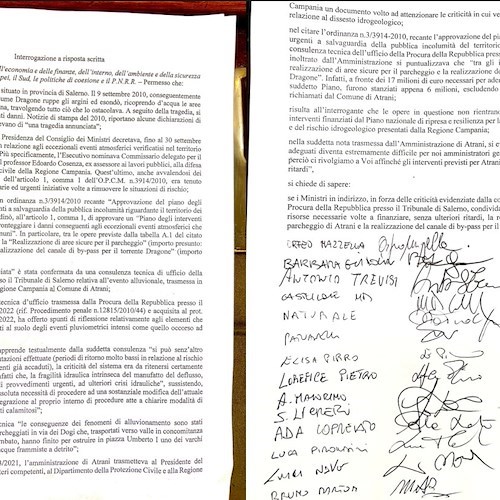 Interrogazione a risposta scritta
ell'economia e delle finanze, dell'interno, dell'ambiente e della sicurezza
pei, il Sud, le politiche di coesione e il P.N.R.R. – Premesso che:
situato in provincia di Salerno. Il 9 settembre 2010, conseguentemente
ume Dragone ruppe gli argini ed esondò, ricoprendo d'acqua le aree
na, travolgendo tutto ciò che lo ostacolava. A seguito della tragedia, si
i danni. Notizie di stampa del 2010, riportano alcune dichiarazioni di
avano di "una tragedia annunciata";
Presidenza del Consiglio dei Ministri decretava, fino al 30 settembre
n relazione agli eccezionali eventi atmosferici verificatisi nel territorio
Più specificamente, l'Esecutivo nominava Commissario delegato per il
l professor Edoardo Cosenza, ex assessore ai lavori pubblici, alla difesa
civile della Regione Campania. Quest'ultimo, anche avvalendosi dei
dell'articolo 1, comma 1 dell'O.P.C.M. n.3914/2010, era tenuto
arie ed urgenti iniziative volte a rimuovere le situazioni di rischio;
n ordinanza n.3/3914-2010 recante "Approvazione del piano degli
enti a salvaguardia della pubblica incolumità riguardante il territorio dei
dinò, all'articolo 1, comma 1, di approvare un "Piano degli interventi
ronteggiare i danni conseguenti agli eccezionali eventi atmosferici che
muni". In particolare, tra le opere previste dalla tabella A.1 del citato
la "Realizzazione di aree sicure per il parcheggio" (importo presunto:
alizzazione del canale di by-pass per il torrente Dragone" (importo
iata" è stata confermata da una consulenza tecnica di ufficio della
sso il Tribunale di Salerno relativa all'evento alluvionale, trasmessa in
egione Campania al Comune di Atrani;
tecnica d'ufficio trasmessa dalla Procura della Repubblica presso il
022 (rif. Procedimento penale n.12815/2010/44) e acquisita al prot.
2022 ha offerto spunti di riflessione relativamente agli elementi che
ti al suolo degli eventi pluviometrici intensi come quello occorso ad
apprende testualmente dalla suddetta consulenza "si può senz'altro
utazioni effettuate (periodi di ritorno molto bassi in relazione al rischio
enti già accaduti), la criticità del sistema era da ritenersi certamente
nfatti che, la fragilità idraulica intrinseca del manufatto del deflusso,
i provvedimenti urgenti, ad ulteriori crisi idrauliche", sussistendo,
assoluta necessità di procedere ad una sostanziale modifica dell'attuale
tegrazione al proprio interno di procedure atte a chiarire modalità di
ti calamitosi";
cnica "le conseguenze dei fenomeni di alluvionamento sono stati
archeggiati in via dei Dogi che, trasportati verso valle in concomitanza
mbato, hanno finito per ostruire in piazza Umberto I uno dei varchi
acque frammiste a detrito";
3/2021, l'amministrazione di Atrani trasmetteva al Presidente del
teri competenti, al Dipartimento della Protezione Civile e alla Regione
Campania un documento volto ad attenzionare le criticità in cui ve
relazione al dissesto idrogeologico;
nel citare l'ordinanza n.3/3914-2010, recante l'approvazione del pian
urgenti a salvaguardia della pubblica incolumità del territorio
consulenza tecnica dell'ufficio della Procura della Repubblica press
inoltrato dall'Amministrazione si puntualizzava che "tra gli i
realizzazione di aree sicure per il parcheggio e la realizzazione de
Dragone". Infatti, a fronte dei 17 milioni di euro necessari per adem
suddetto Piano, furono stanziati appena 6 milioni, escludendo
richiamati dal Comune di Atrani;
risulta all'interrogante che le opere in questione non rientrano
interventi finanziati dal Piano nazionale di ripresa e resilienza per la
e del rischio idrogeologico presentati dalla Regione Campania;
nella suddetta nota trasmessa dall'Amministrazione di Atrani, si e
adeguati diventa estremamente difficile per noi amministratori ge
perciò ci rivolgiamo a Voi affinché gli interventi previsti per Atrani
ritardi",
si chiede di sapere:
se i Ministri in indirizzo, in forza delle criticità evidenziate dalla cons
Procura della Repubblica presso il Tribunale di Salerno, condivido
risorse necessarie volte a finanziare, senza ulteriori ritardi, la re
parcheggio di Atrani e la realizzazione del canale di by-pass per il t
ORFEO MAZZELLA
BARBARA GUIDOLIN
ANTONIO TREVISI
CASTELLONE
NATURALE
PATUANELLI
ELISA PIRRO
LOREFICE PIETRO
A. MAIORINO
S. LICHERI
ADA LOPREIATO
LUCA PIRONDINI
LUIGI NAVE
BRUNO MARTON